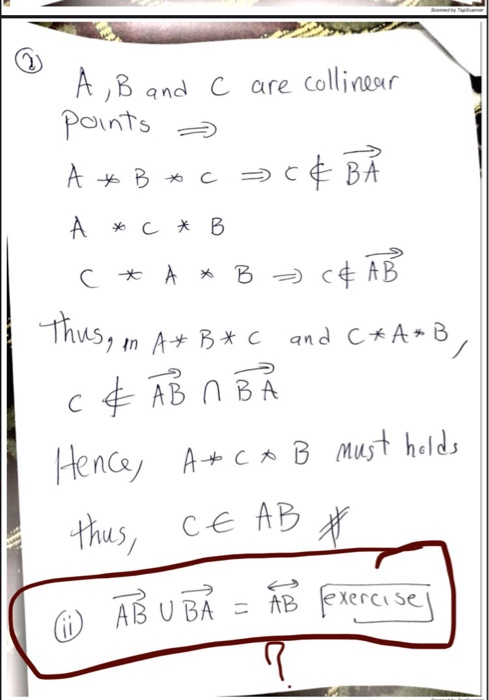 Scanned by TapScanner
②
A, B and C are collinear
points ⇒
A * B * C ⇒ C ∉ →BA
A * C * B
C * A * B ⇒ C ∉ →AB
Thus, in A * B * C and C * A * B,
C ∉ →AB ∩ →BA
Hence, A * C * B must holds
thus, C ∈ AB #
(ii) →AB ∪ →BA = ↔AB [exercise]
?